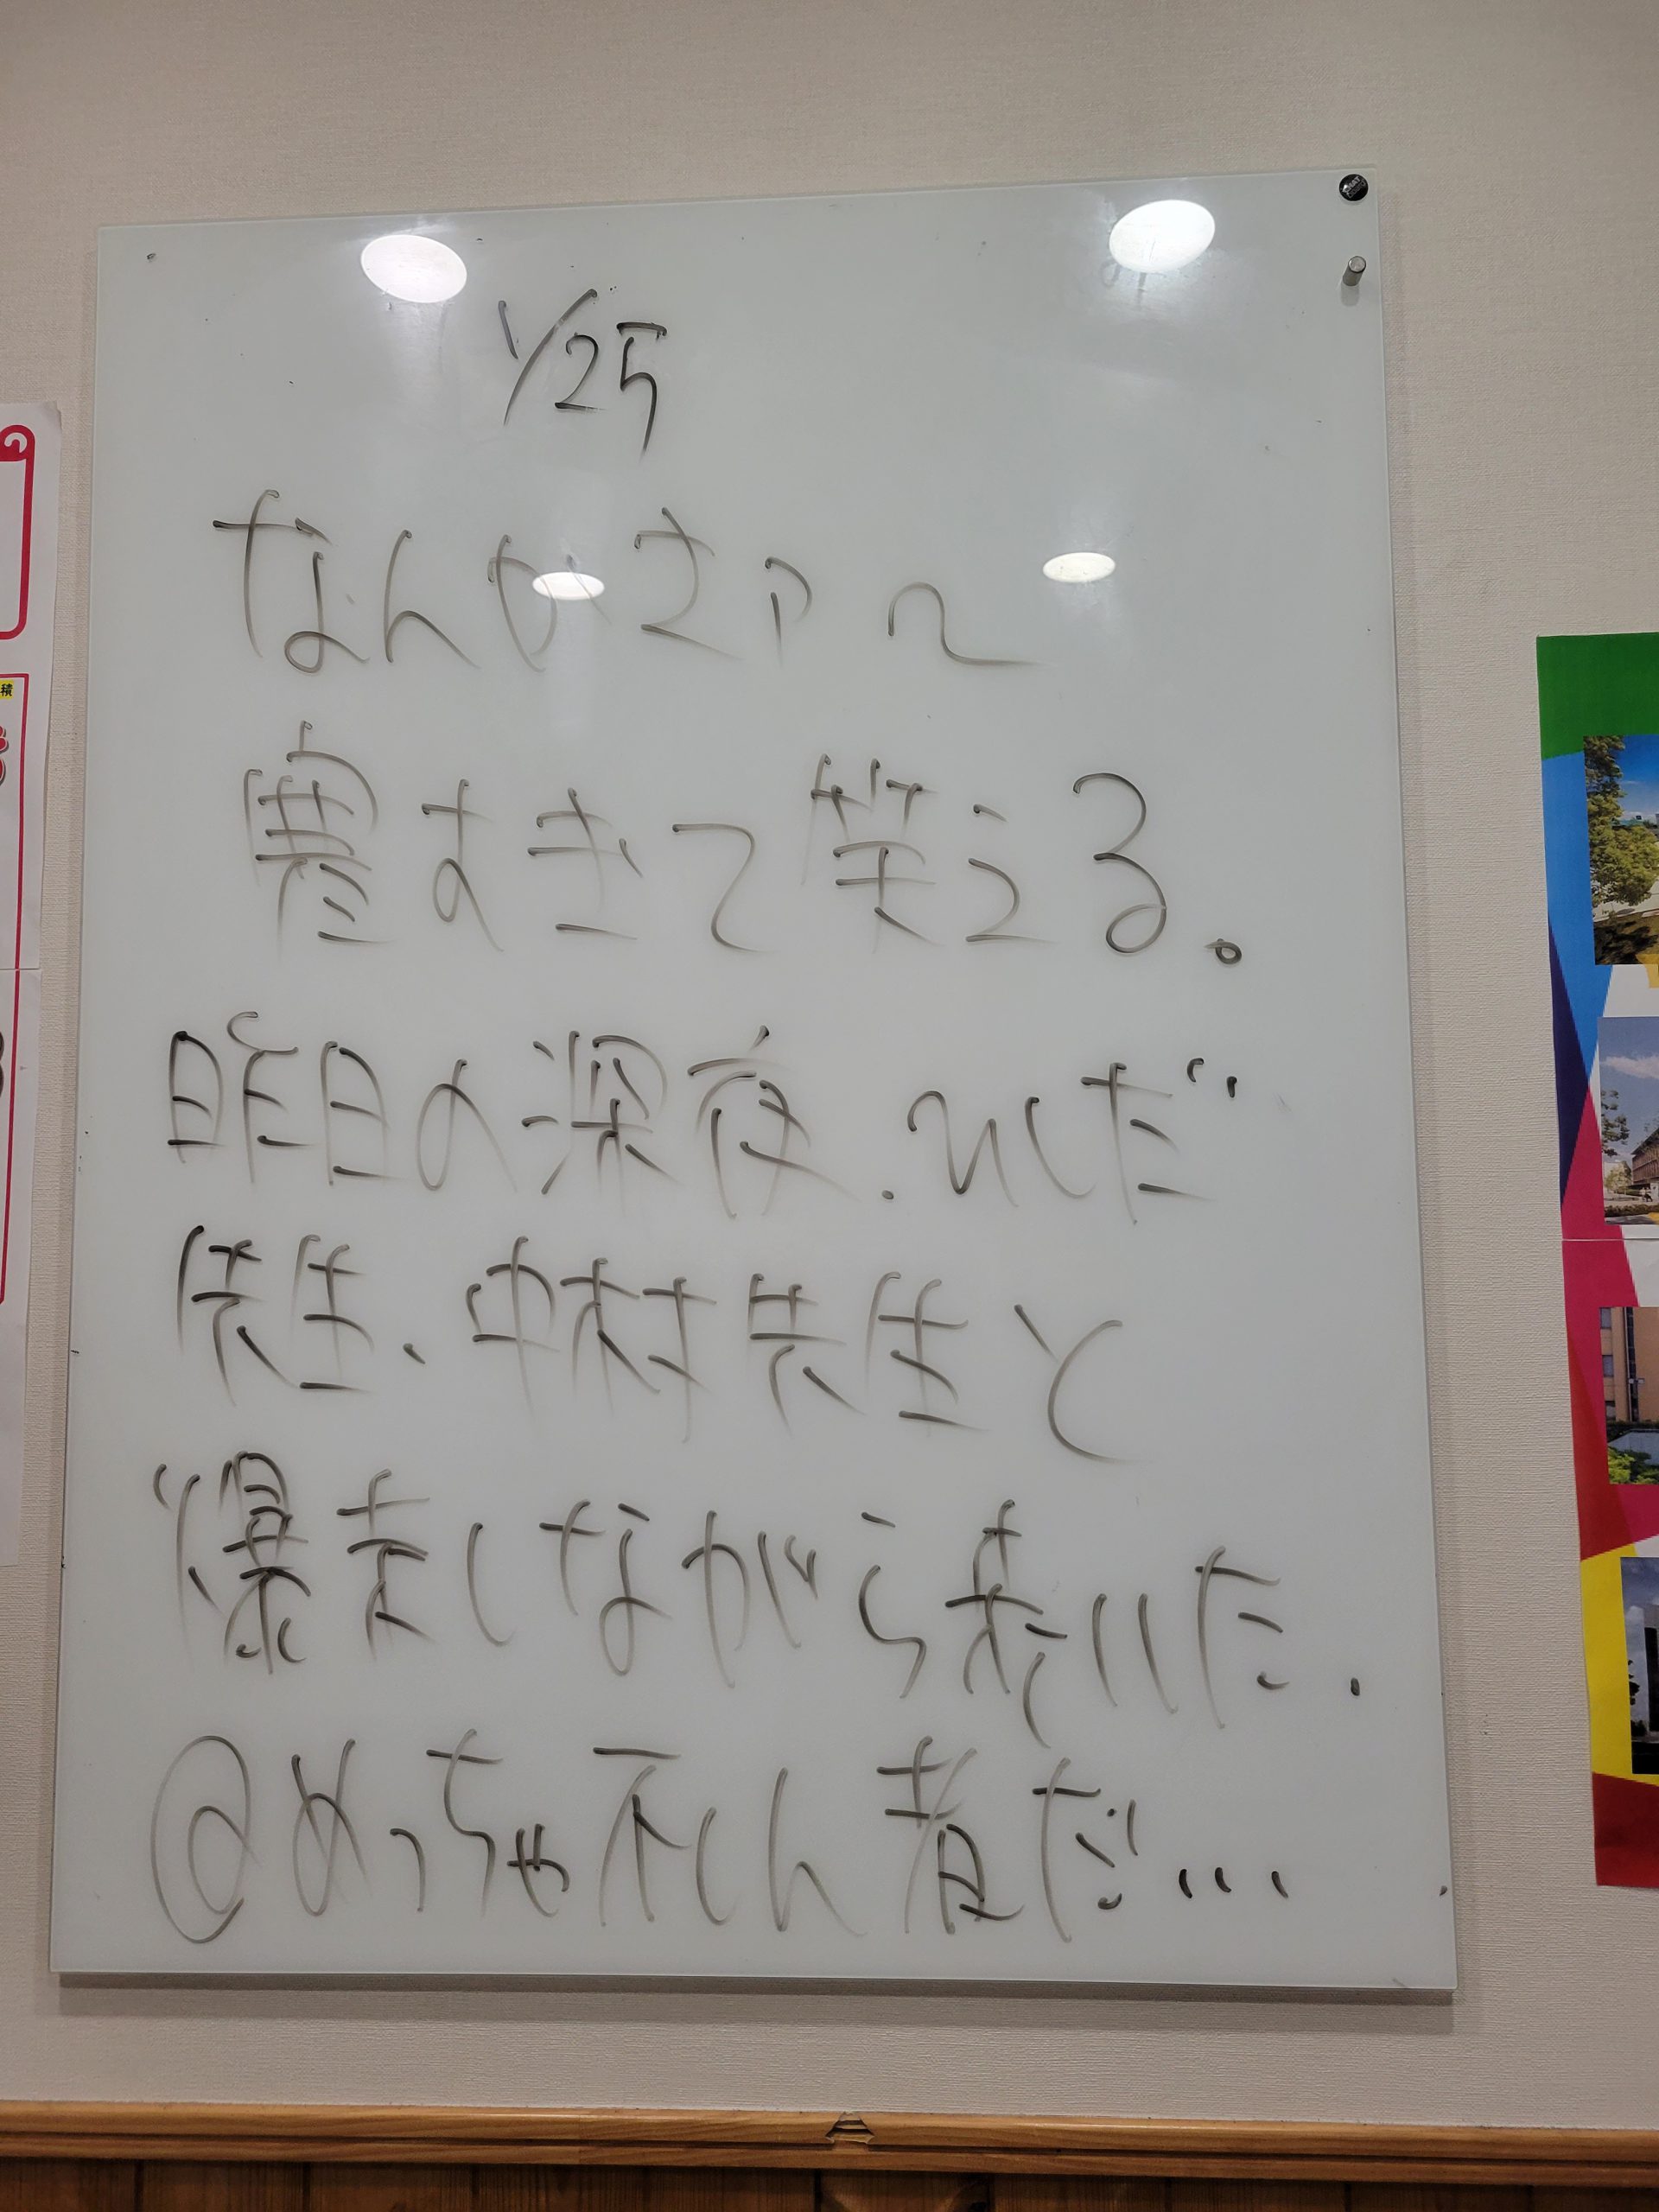 1/25
なんかさァ〜
寒すぎて笑える。
昨日の深夜、いしだ
先生、中村先生と
爆走しながら歩いた.
@めっちゃ不しん者だ…
積